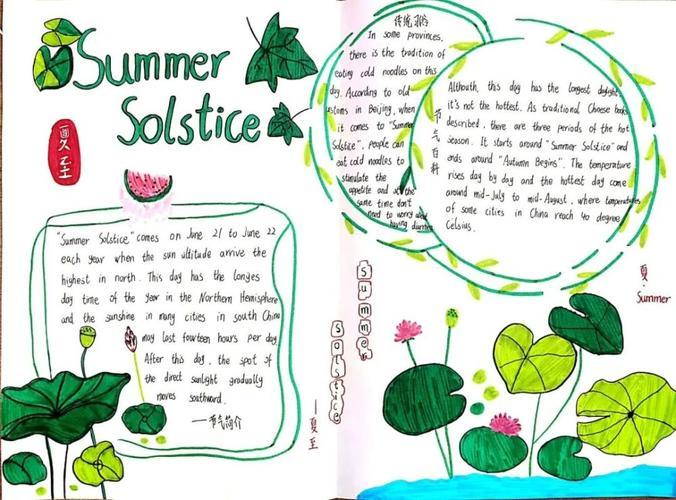 Summer
Solstice
夏至
"Summer Solstice" comes on June 21 to June 22
each year when the sun altitude arrive the
highest in north. This day has the longes
day time of the year in the Northern Hemisphere
and the sunshine in many cities in south China
may last fourteen hours per day.
After this day, the spot of
the direct sunlight gradually
moves southward.
—节气简介
—夏至
Solstice
Summer
传统习俗
In some provinces,
there is the tradition of
eating cold noodles on this
day. According to old
customs in Beijing, when
it comes to "Summer
Solstice", people can
eat cold noodles to
stimulate the
appetite and at the
same time don't
need to worry about
having diarrhea
节气百科
Althouth this day has the longest daylight,
it's not the hottest. As traditional Chinese books
described, there are three periods of the hot
season. It starts around "Summer Solstice" and
ends around "Autumn Begins". The temperature
rises day by day and the hottest day come
around mid-July to mid-August, where temperatures
of some cities in China reach 40 degree
Celsius.
夏·
Summer